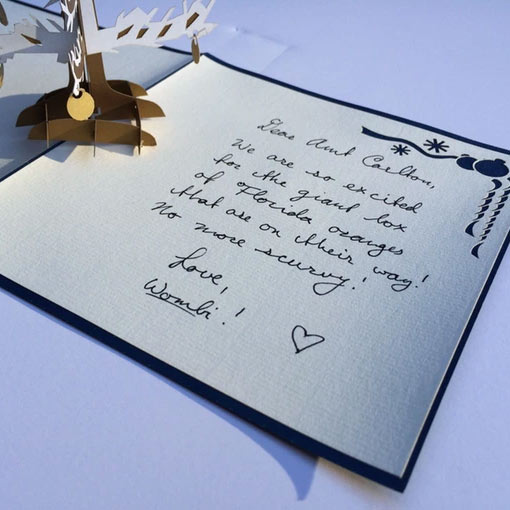 Dear Aunt Carlton,
We are so excited
for the giant box
of Florida oranges
that are on their way!
No more scurvy!
Love,
Wombi!